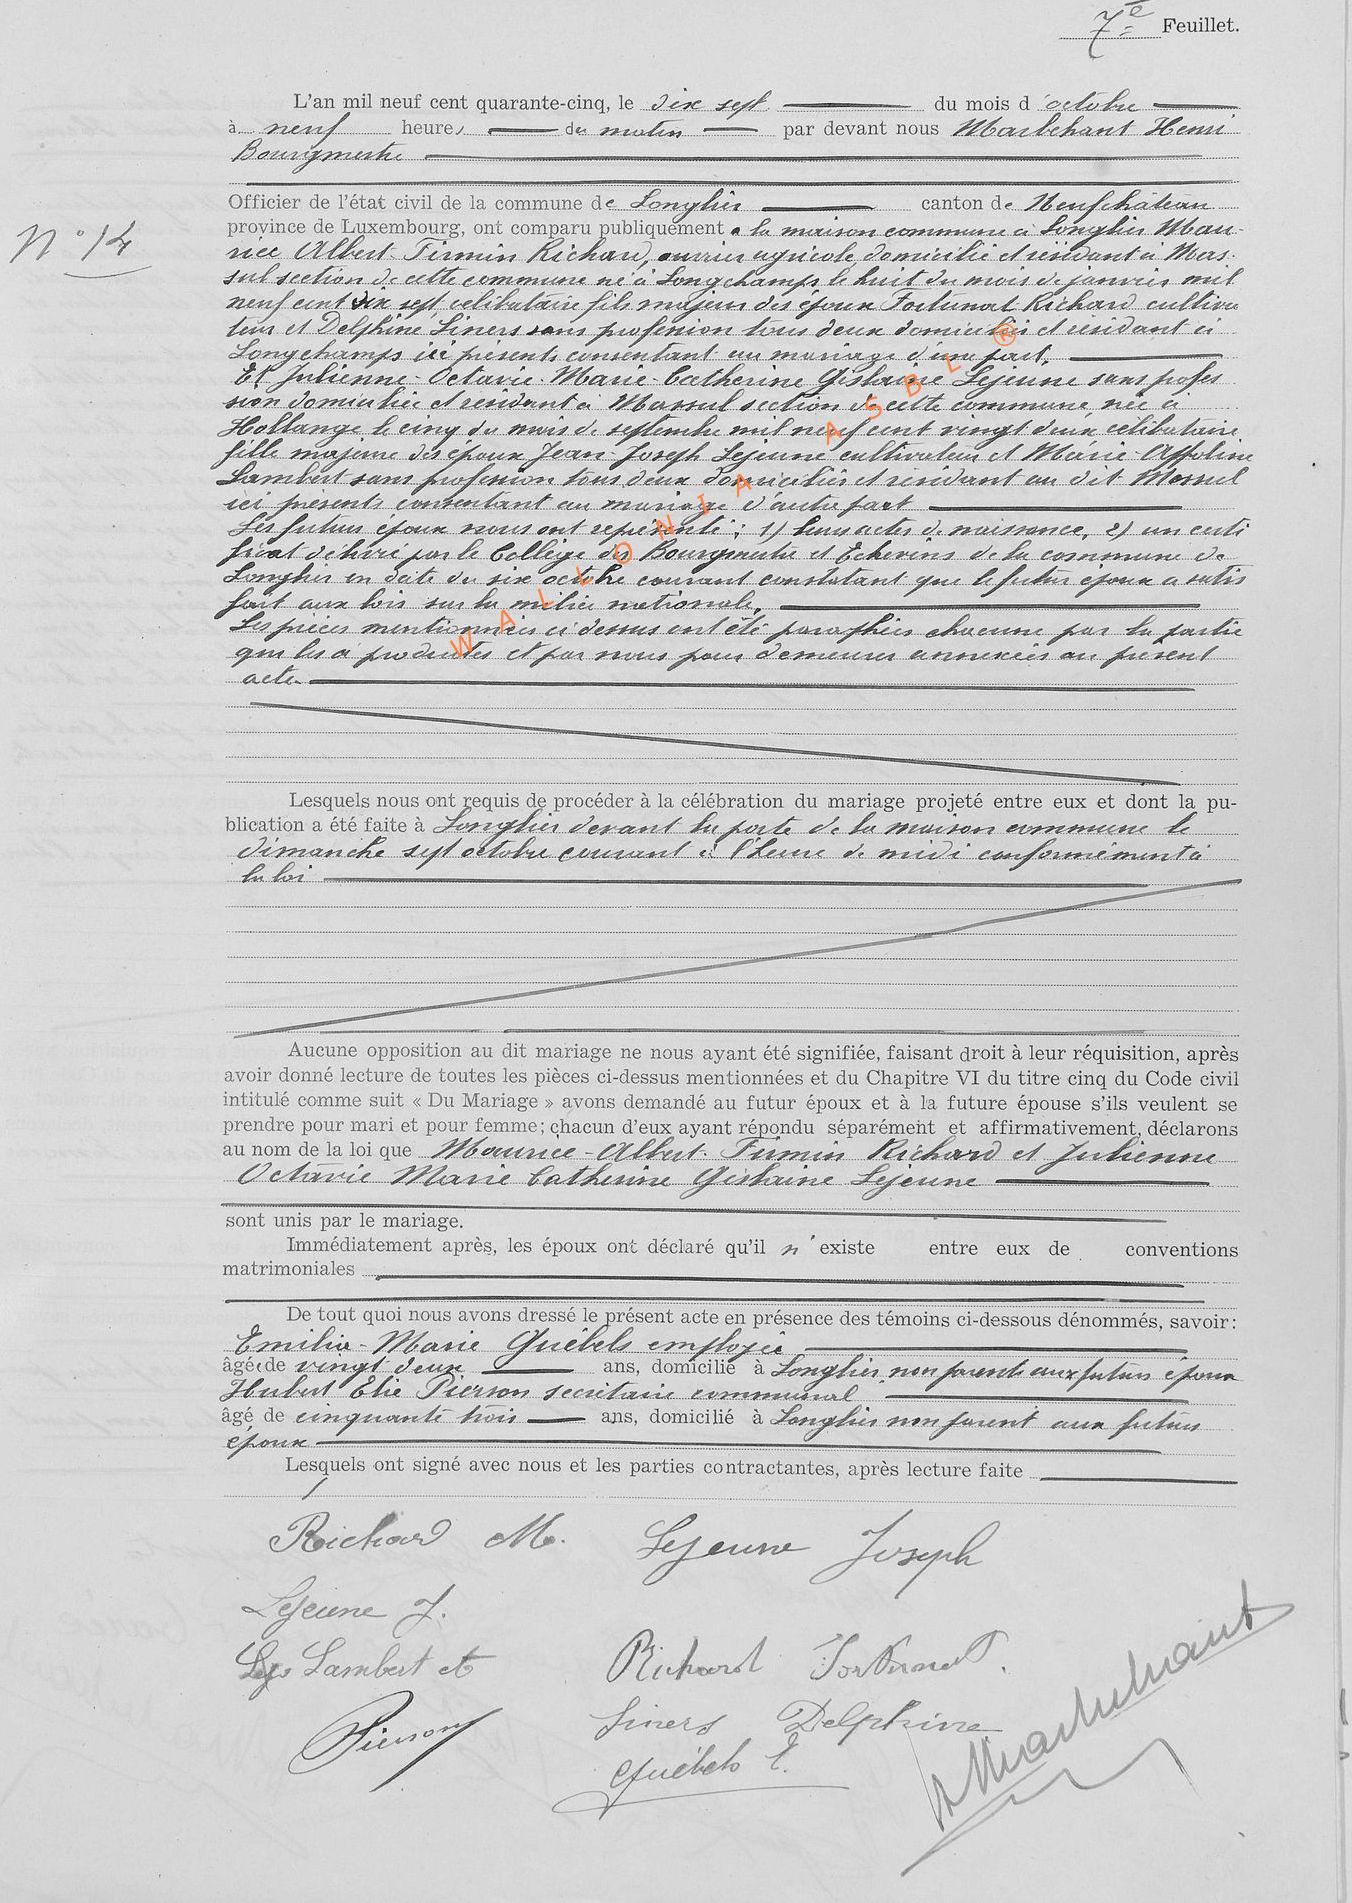 7e Feuillet.
L'an mil neuf cent quarante-cinq, le dix sept du mois d'octobre
à neuf heures du matin par devant nous Marbehant Henri
Bourgmestre
Officier de l'état civil de la commune de Longlier canton de Neufchâteau
N° 14
province de Luxembourg, ont comparu publiquement à la maison commune à Longlier Mau-
rice Albert Firmin Richard, ouvrier agricole domicilié et résidant à Mas-
sul section de cette commune né à Longchamps le huit du mois de janvier mil
neuf cent dix sept célibataire fils majeur des époux Fortunat Richard cultiva
teur et Delphine Siners sans profession tous deux domiciliés et résidant à
Longchamps ici présents consentant au mariage d'une part.
Et Julienne-Octavie-Marie-Catherine Gislaine Lejeune sans profes
sion domiciliée et résidant à Massul section de cette commune, née à
Hollange le cinq du mois de septembre mil neuf cent vingt deux célibataire
fille majeure des époux Jean-Joseph Lejeune cultivateur et Marie-Appoline
Lambert sans profession tous deux domiciliés et résidant au dit Massul
ici présents consentant au mariage d'autre part
Les futurs époux nous ont représenté: 1) leurs actes de naissance, 2) un certi
ficat délivré par le Collège des Bourgmestre et Echevins de la commune de
Longlier en date du six octobre courant constatant que le futur époux a satis
fait aux lois sur la milice nationale.
Les pièces mentionnées ci dessus ont été paraphées chacune par la partie
qui les a produites et par nous pour demeurer annexées au présent
acte
WALLONIA ASBL ®
Lesquels nous ont requis de procéder à la célébration du mariage projeté entre eux et dont la pu-
blication a été faite à Longlier devant la porte de la maison commune le
dimanche sept octobre courant à l'heure de midi conformément à
la loi
Aucune opposition au dit mariage ne nous ayant été signifiée, faisant droit à leur réquisition, après
avoir donné lecture de toutes les pièces ci-dessus mentionnées et du Chapitre VI du titre cinq du Code civil
intitulé comme suit « Du Mariage » avons demandé au futur époux et à la future épouse s'ils veulent se
prendre pour mari et pour femme; chacun d'eux ayant répondu séparément et affirmativement, déclarons
au nom de la loi que Maurice-Albert-Firmin Richard et Julienne
Octavie Marie Catherine Gislaine Lejeune
sont unis par le mariage.
Immédiatement après, les époux ont déclaré qu'il n'existe entre eux de conventions
matrimoniales
De tout quoi nous avons dressé le présent acte en présence des témoins ci-dessous dénommés, savoir:
Emilie-Marie Guébels employée
âgée de vingt deux ans, domicilié à Longlier non parente aux futurs époux
Hubert Elie Pierson secrétaire communal
âgé de cinquante trois ans, domicilié à Longlier non parent aux futurs
époux
Lesquels ont signé avec nous et les parties contractantes, après lecture faite
Richard M. Lejeune Joseph
Lejeune J.
Lambert Richard Fortunat.
Siners Delphine
Pierson
Guébels E.
H Marbehant